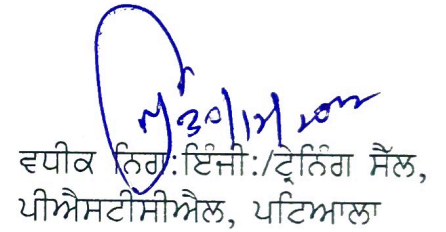 ਵਧੀਕ ਨਿਗ:ਇੰਜੀ:/ਟ੍ਰੇਨਿੰਗ ਸੈੱਲ,
ਪੀਐਸਟੀਸੀਐਲ, ਪਟਿਆਲਾ